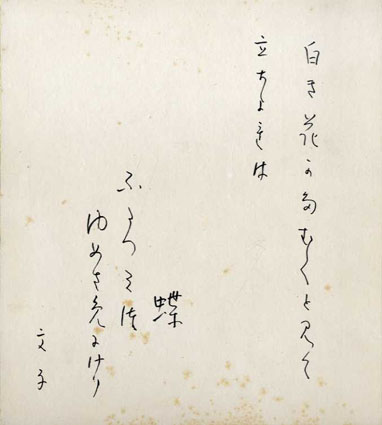 白き花かたむくと見て
立ちよれは
蝶
ふたつみつ
ゆめさめにけり
文子